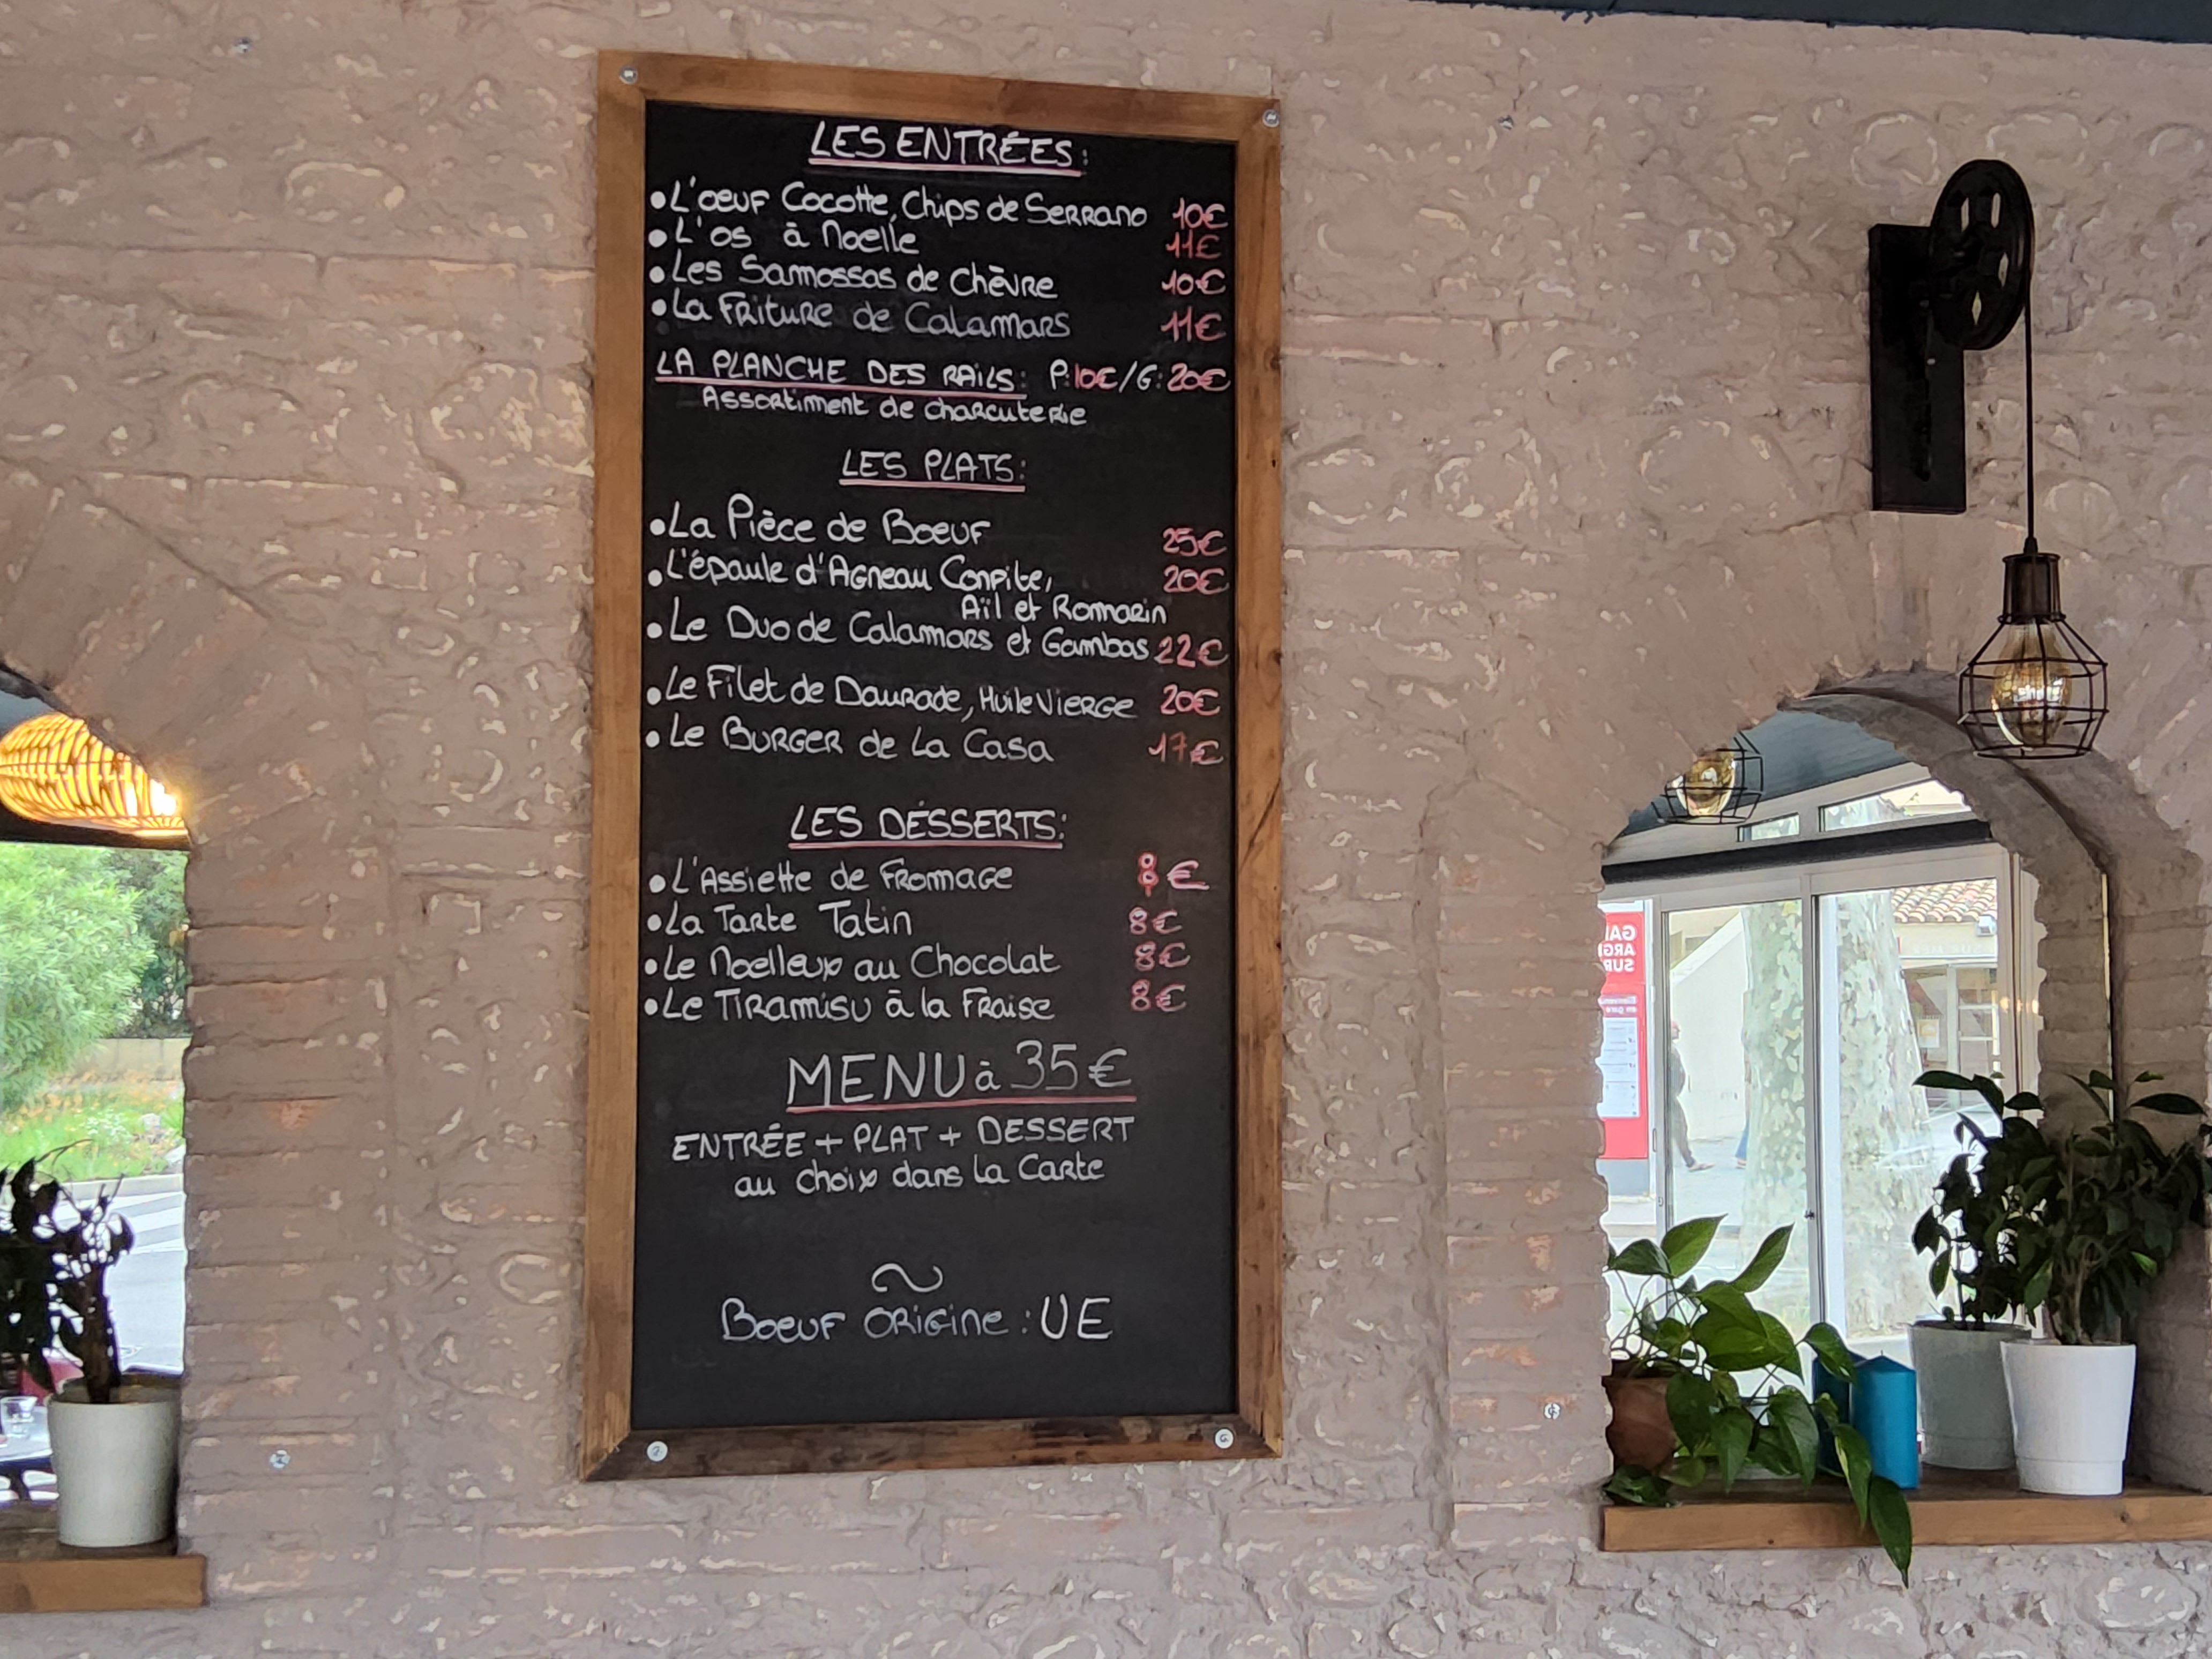 LES ENTRÉES:
• L'oeuf Cocotte, Chips de Serrano 10€
• L'os à Moelle 11€
• Les Samossas de Chèvre 10€
• La Friture de Calamars 11€
LA PLANCHE DES RAILS: P:10€/G:20€
Assortiment de charcuterie
LES PLATS:
• La Pièce de Boeuf 25€
• L'épaule d'Agneau Confite, 20€
Aïl et Romarin
• Le Duo de Calamars et Gambas 22€
• Le Filet de Daurade, Huile Vierge 20€
• Le Burger de la Casa 17€
LES DÉSSERTS:
• L'Assiette de Fromage 8€
• La Tarte Tatin 8€
• Le Moelleux au Chocolat 8€
• Le Tiramisu à la Fraise 8€
MENU à 35€
ENTRÉE + PLAT + DESSERT
au choix dans la Carte
Boeuf origine : UE
GA
ARG
SUR
Bienvenue
en gare